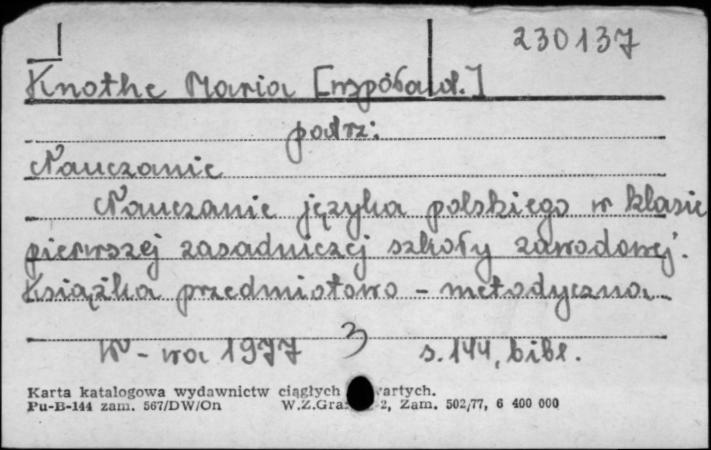 230137
Knothe Maria [współaut.]
podrz:
Nauczanie
Nauczanie języka polskiego w klasie
pierwszej zasadniczej szkoły zawodowej.
Książka przedmiotowo - metodyczna
W-wa 1977 3 s. 144, bibl.
Karta katalogowa wydawnictw ciągłych
Pu-B-144 zam. 567/DW/On W.Z.Gra 2, Zam. 502/77, 6 400 000